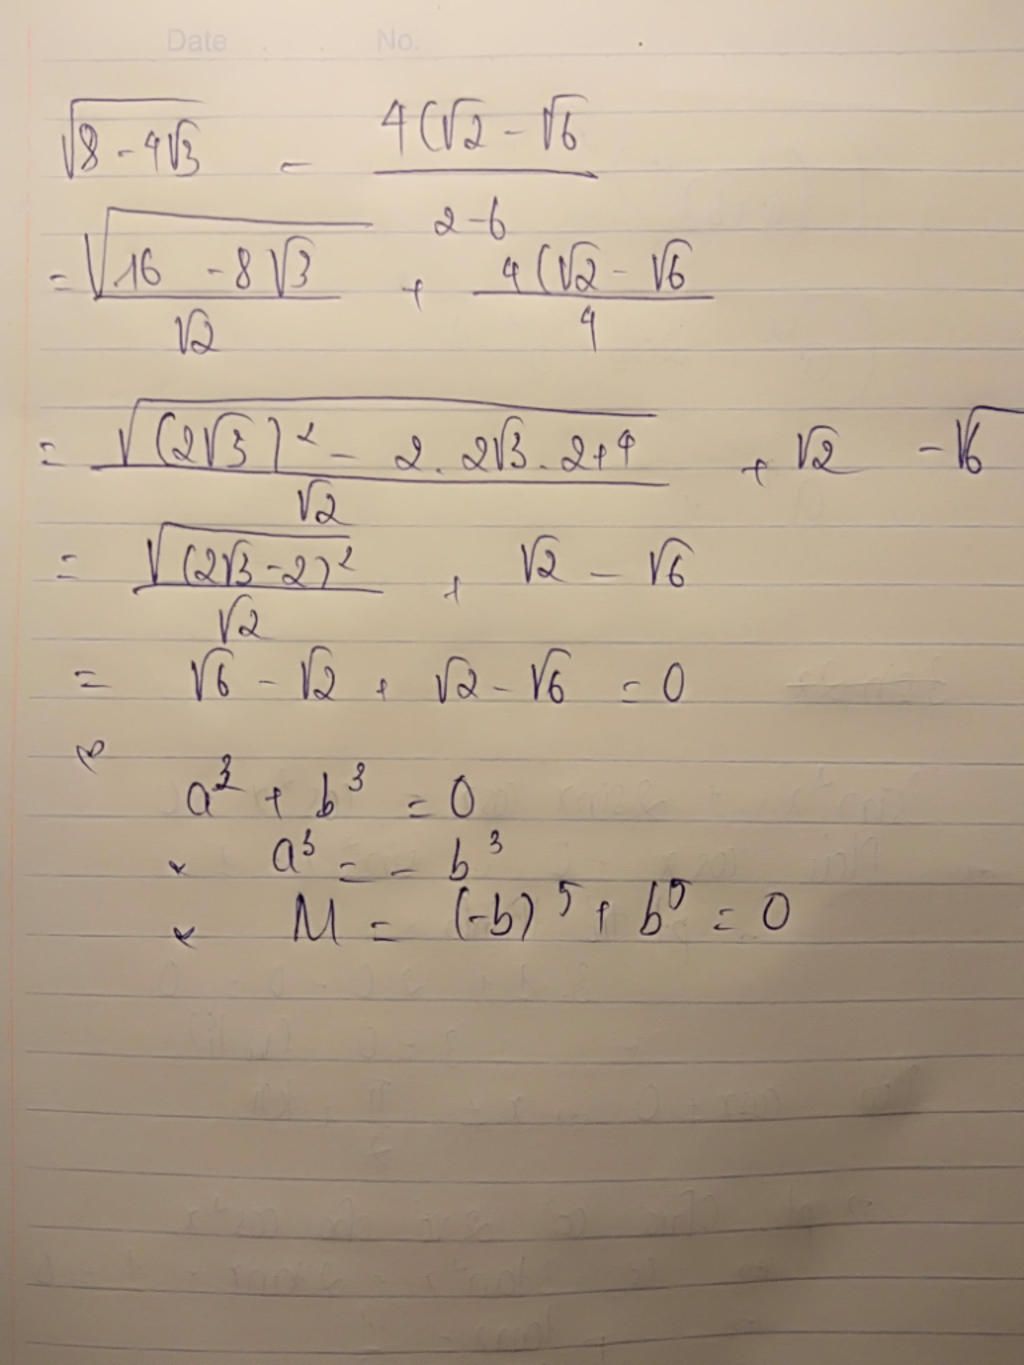 Date . . No.
√(8 - 4√3) - 4(√2 - √6 / 2-6
= √(16 - 8√3) / √2 + 4(√2 - √6 / 4
= √((2√3)² - 2. 2√3. 2+4) / √2 + √2 - √6
= √((2√3-2)²) / √2 + √2 - √6
= √6 - √2 + √2 - √6 = 0
a³ + b³ = 0
a³ = - b³
M = (-b)⁵ + b⁵ = 0